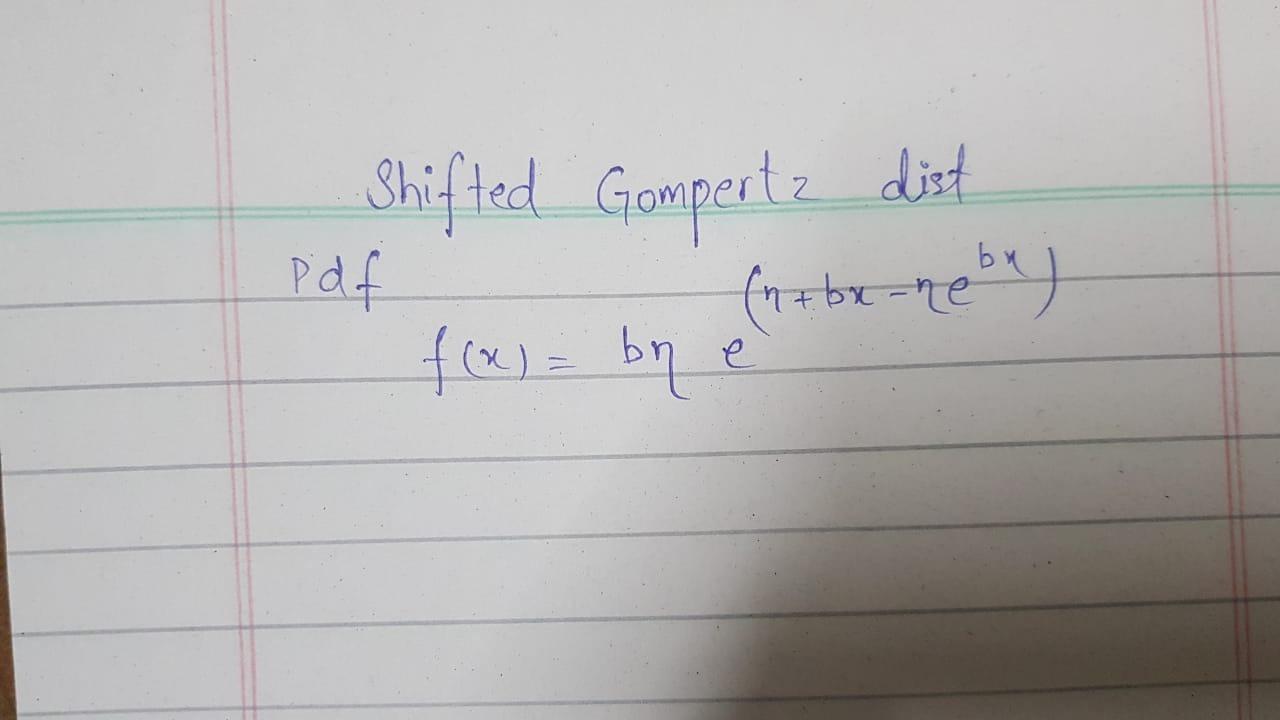 Shifted Gompertz dist
Pdf
f(x) = bη e^(η + bx - ηe^bx)